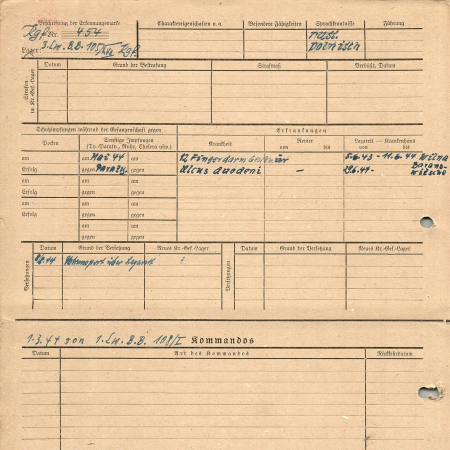 Beschriftung der Erkennungsmarke
Charaktereigenschaften u. a.
Besondere Fähigkeiten
Sprachkenntnisse
Führung
Kgf. Nr. 454
russ.
polnisch
Lager: 3. Lw. B.B. 105
Strafen in Kr.-Gef.-Lager
Datum
Grund der Bestrafung
Strafmaß
Verbüßt, Datum
Schutzimpfungen während der Gefangenschaft gegen
Erkrankungen
Pocken
Sonstige Impfungen
(Ty.-Paraty., Ruhr, Cholera usw.)
Krankheit
Revier
von bis
Lazarett — Krankenhaus
von bis
am
am Mai 44
12 Fingerdarm
5.6.43 - 11.6.44 Wilna
Erfolg
gegen Paraty.
Ulcus duodeni
-
Baranowitsche
am
am
Erfolg
gegen
am
am
Erfolg
gegen
am
gegen
am
gegen
Versetzungen
Datum
Grund der Versetzung
Neues Kr.-Gef.-Lager
Versetzungen
Datum
Grund der Versetzung
Neues Kr.-Gef.-Lager
1.3.44 von 1. Lw. B.B. 108/I
Kommandos
Datum
Art des Kommandos
Rückkehrdatum